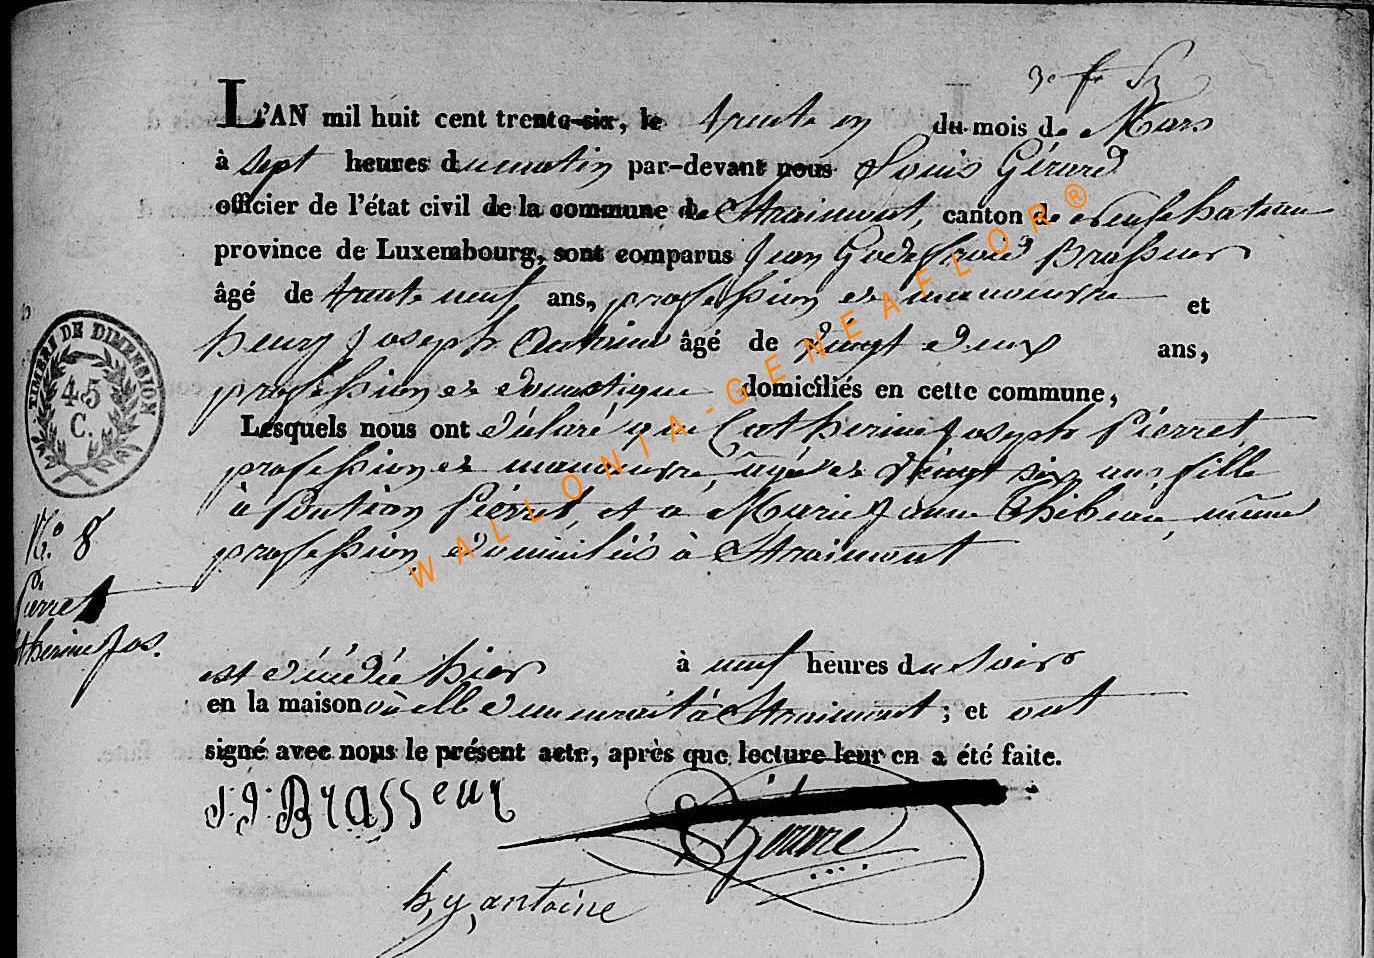 L'AN mil huit cent trente-six, le trente un du mois de Mars
à sept heures du matin par-devant nous Louis Gérard
officier de l'état civil de la commune de Straimont, canton de neufchateau
province de Luxembourg, sont comparus Jean Godefroid Brasseur
âgé de trente neuf ans, profession de manoeuvre et
henry Joseph Antoine âgé de vingt deux ans,
profession de domestique domiciliés en cette commune,
Lesquels nous ont déclaré que Catherine Joseph Pierret
profession de manoeuvre, agée de vingt six ans, fille
à Pontian Pierret, et a Marie Jeanne Thibeau, même
profession, domiciliés à Straimont
est décédée hier à neuf heures du Soir
en la maison où elle demeurait à Straimont ; et ont
signé avec nous le présent acte, après que lecture leur en a été faite.
J: J: Brasseur
Gérard
h, y, antoine
TIMBRE DE DIMENSION
45
C.
N.º 8
Pierret
therine Jos.
WALLONIA-GENEAFLOR®